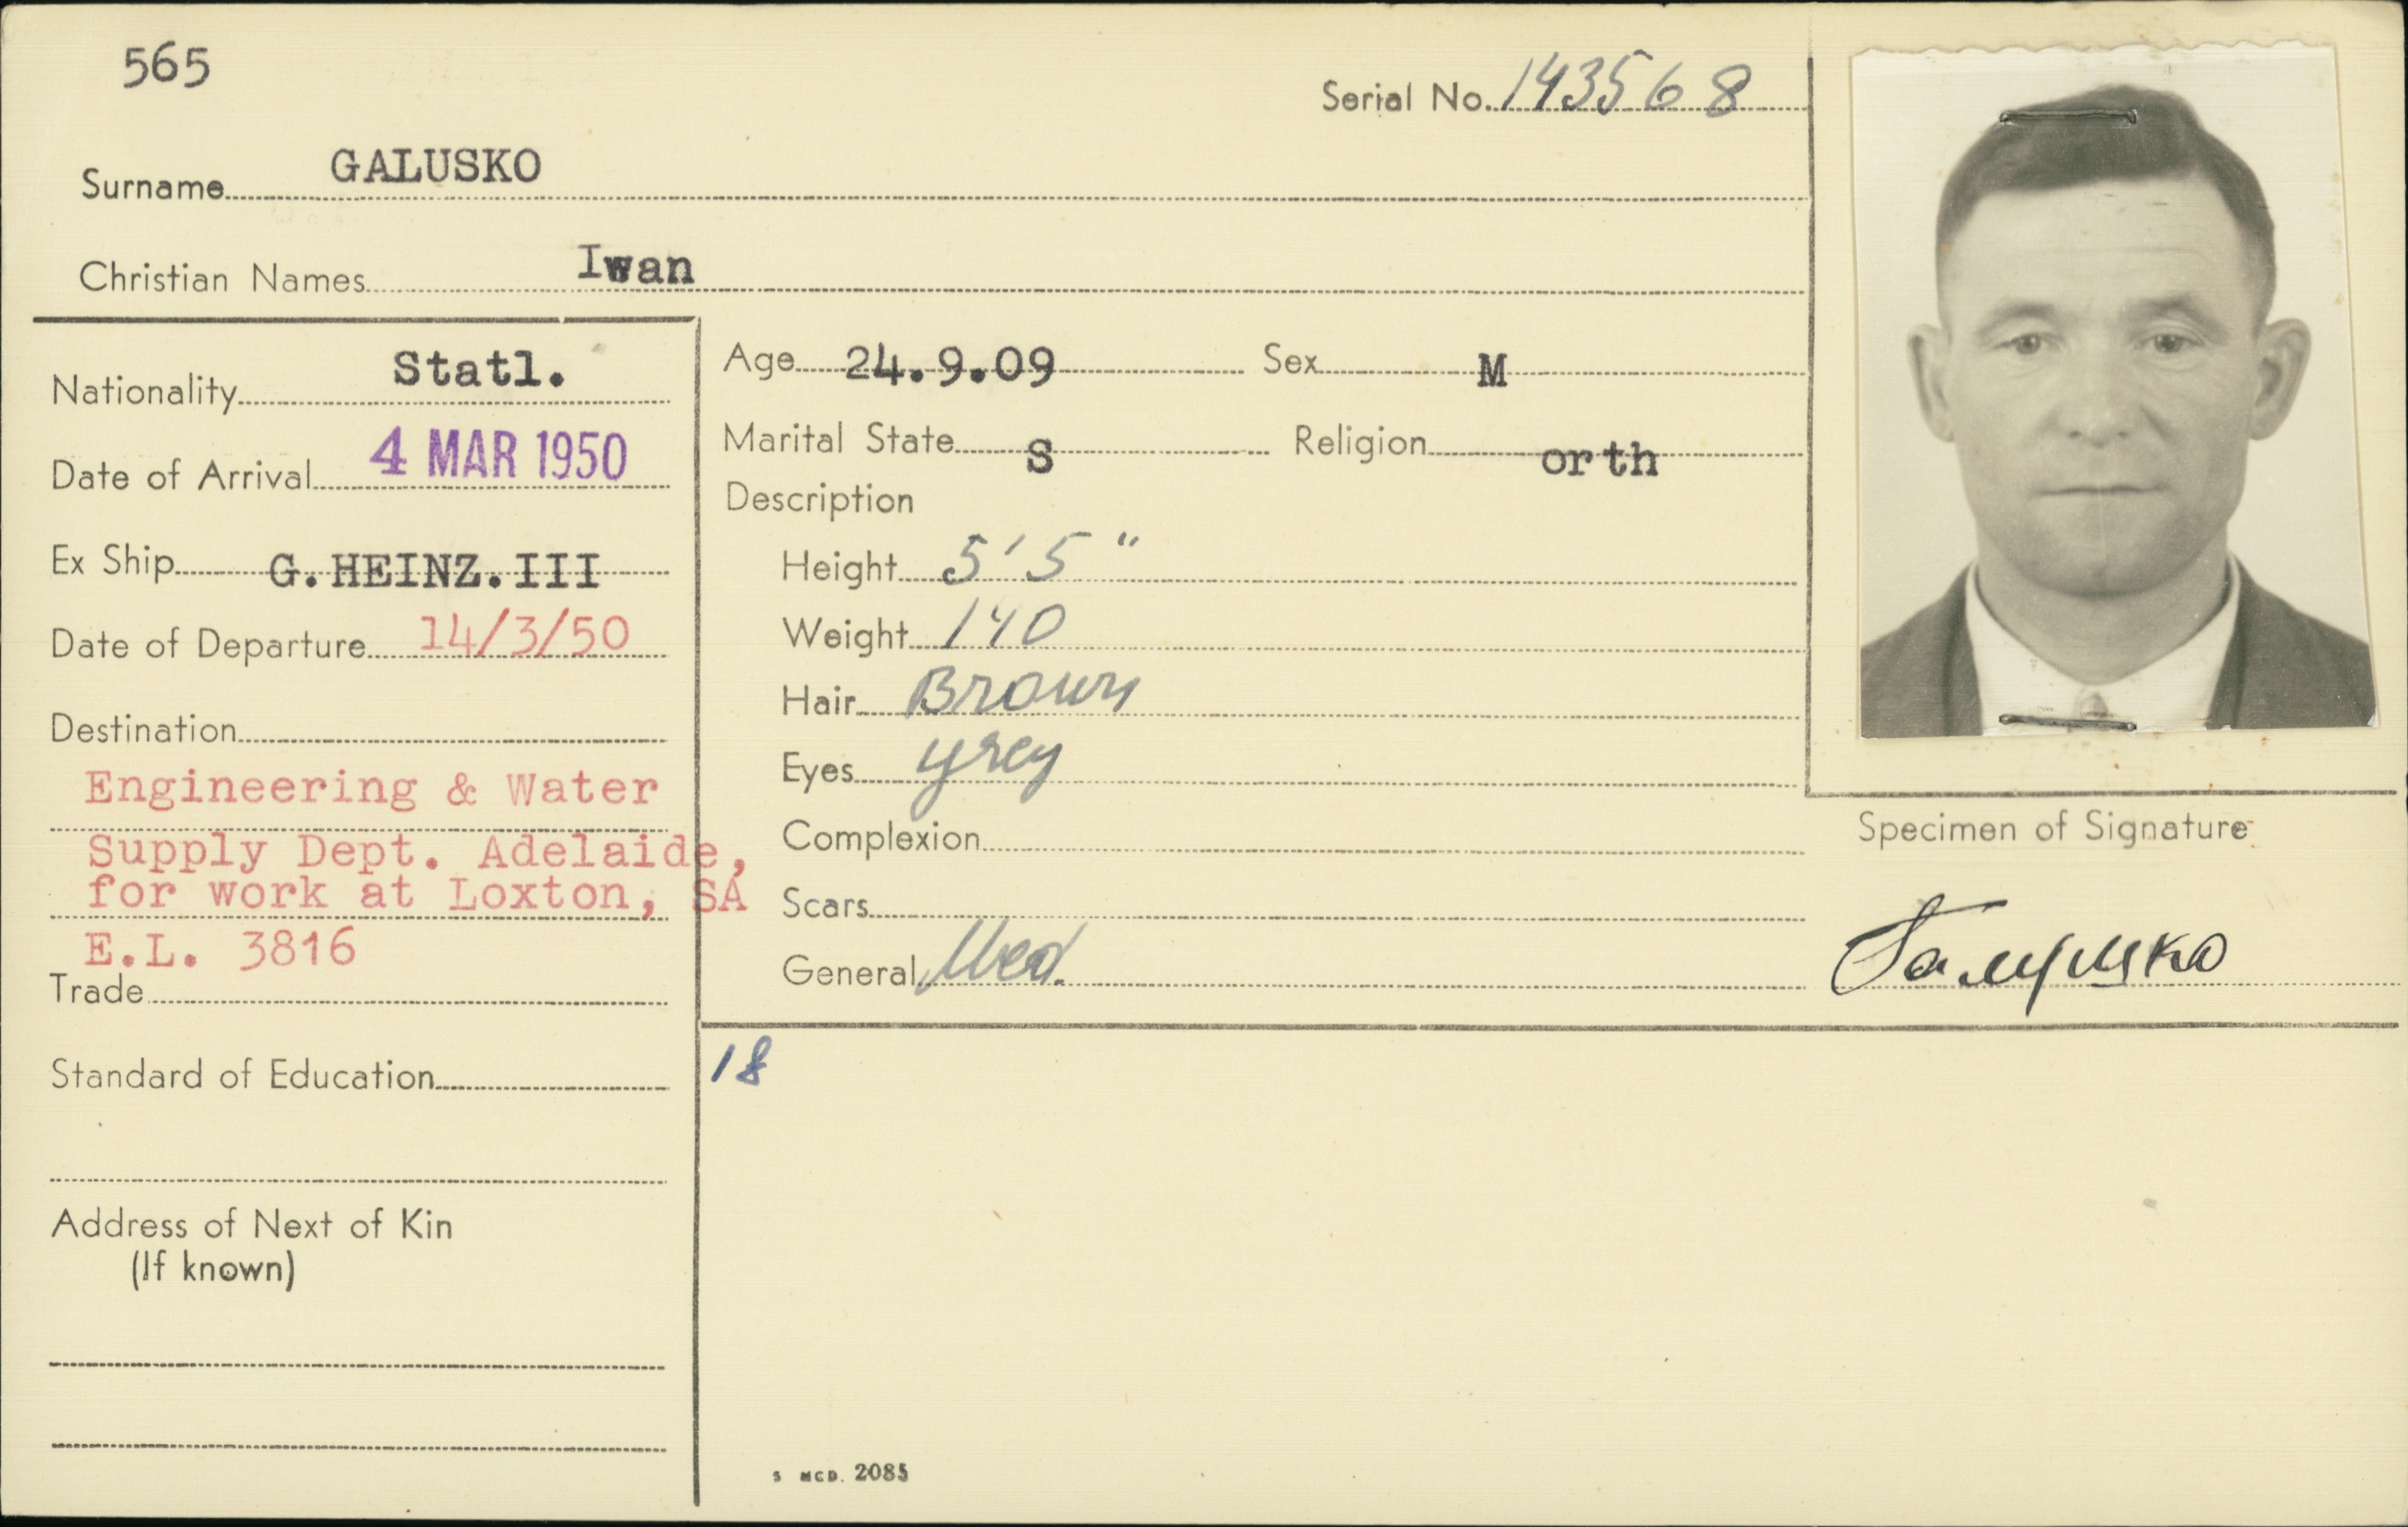 565
Serial No. 143568
Surname GALUSKO
Christian Names Iwan
Nationality Statl.
Date of Arrival 4 MAR 1950
Ex Ship G.HEINZ.III
Date of Departure 14/3/50
Destination
Engineering & Water
Supply Dept. Adelaide,
for work at Loxton, SA
E.L. 3816
Trade
Standard of Education
Address of Next of Kin
(If known)
Age 24.9.09 Sex M
Marital State S Religion orth
Description
Height 5'5"
Weight 140
Hair Brown
Eyes grey
Complexion
Scars
General Med.
18
S MCD. 2085
Specimen of Signature
Галушко